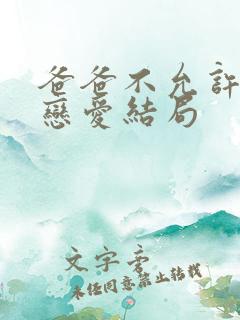 爸爸不允許
戀愛結局
文字旁
未经同意禁止转载